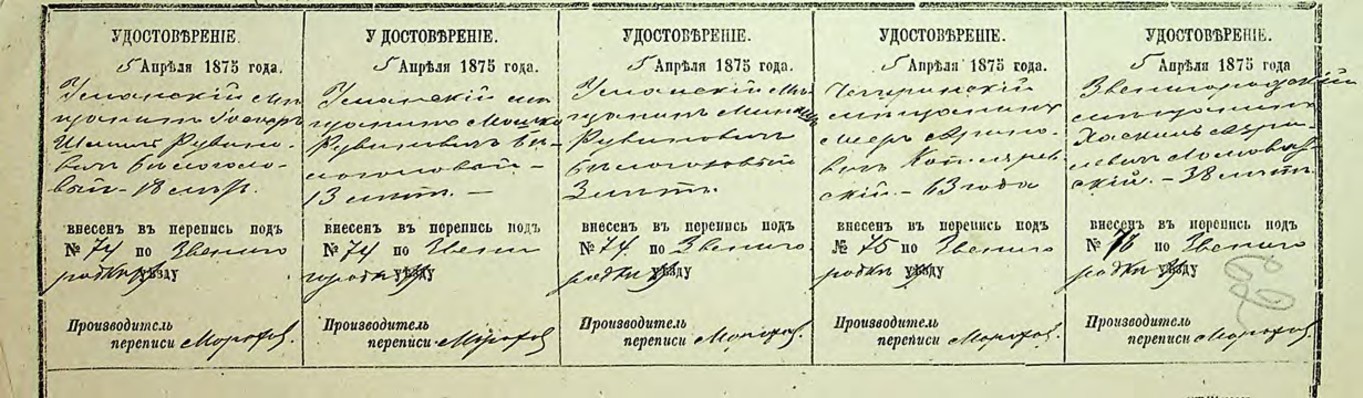 УДОСТОВѢРЕНІЕ.
5 Апрѣля 1875 года.
Уманскій мѣ-
щанинъ
Рувино-
вичъ Бѣлоголо-
вый - 18 лѣтъ.
внесенъ въ перепись подъ
№ 74 по Звениго
родки уѣзду
Производитель
переписи
УДОСТОВѢРЕНІЕ.
5 Апрѣля 1875 года.
Уманскій мѣ
щанинъ Мошко
Рувиновичъ Бѣ-
логоловый -
13 лѣтъ. -
внесенъ въ перепись подъ
№ 74 по Звени
городки уѣзду
Производитель
переписи
УДОСТОВѢРЕНІЕ.
5 Апрѣля 1875 года.
Уманскій мѣ
щанинъ
Рувиновичъ
Бѣлоголовый
3 лѣтъ.
внесенъ въ перепись подъ
№ 74 по Звениго
родки уѣзду
Производитель
переписи
УДОСТОВѢРЕНІЕ.
5 Апрѣля 1875 года.
Чигиринскій
мѣщанинъ
Меръ
вичъ
скій. - 63 года
внесенъ въ перепись подъ
№ 75 по Звениго
родки уѣзду
Производитель
переписи
УДОСТОВѢРЕНІЕ.
5 Апрѣля 1875 года
Звенигородскій
мѣщанинъ
Хаскель Азрі-
левичъ
скій. - 38 лѣтъ.
внесенъ въ перепись подъ
№ 76 по Звениго
родки уѣзду
Производитель
переписи